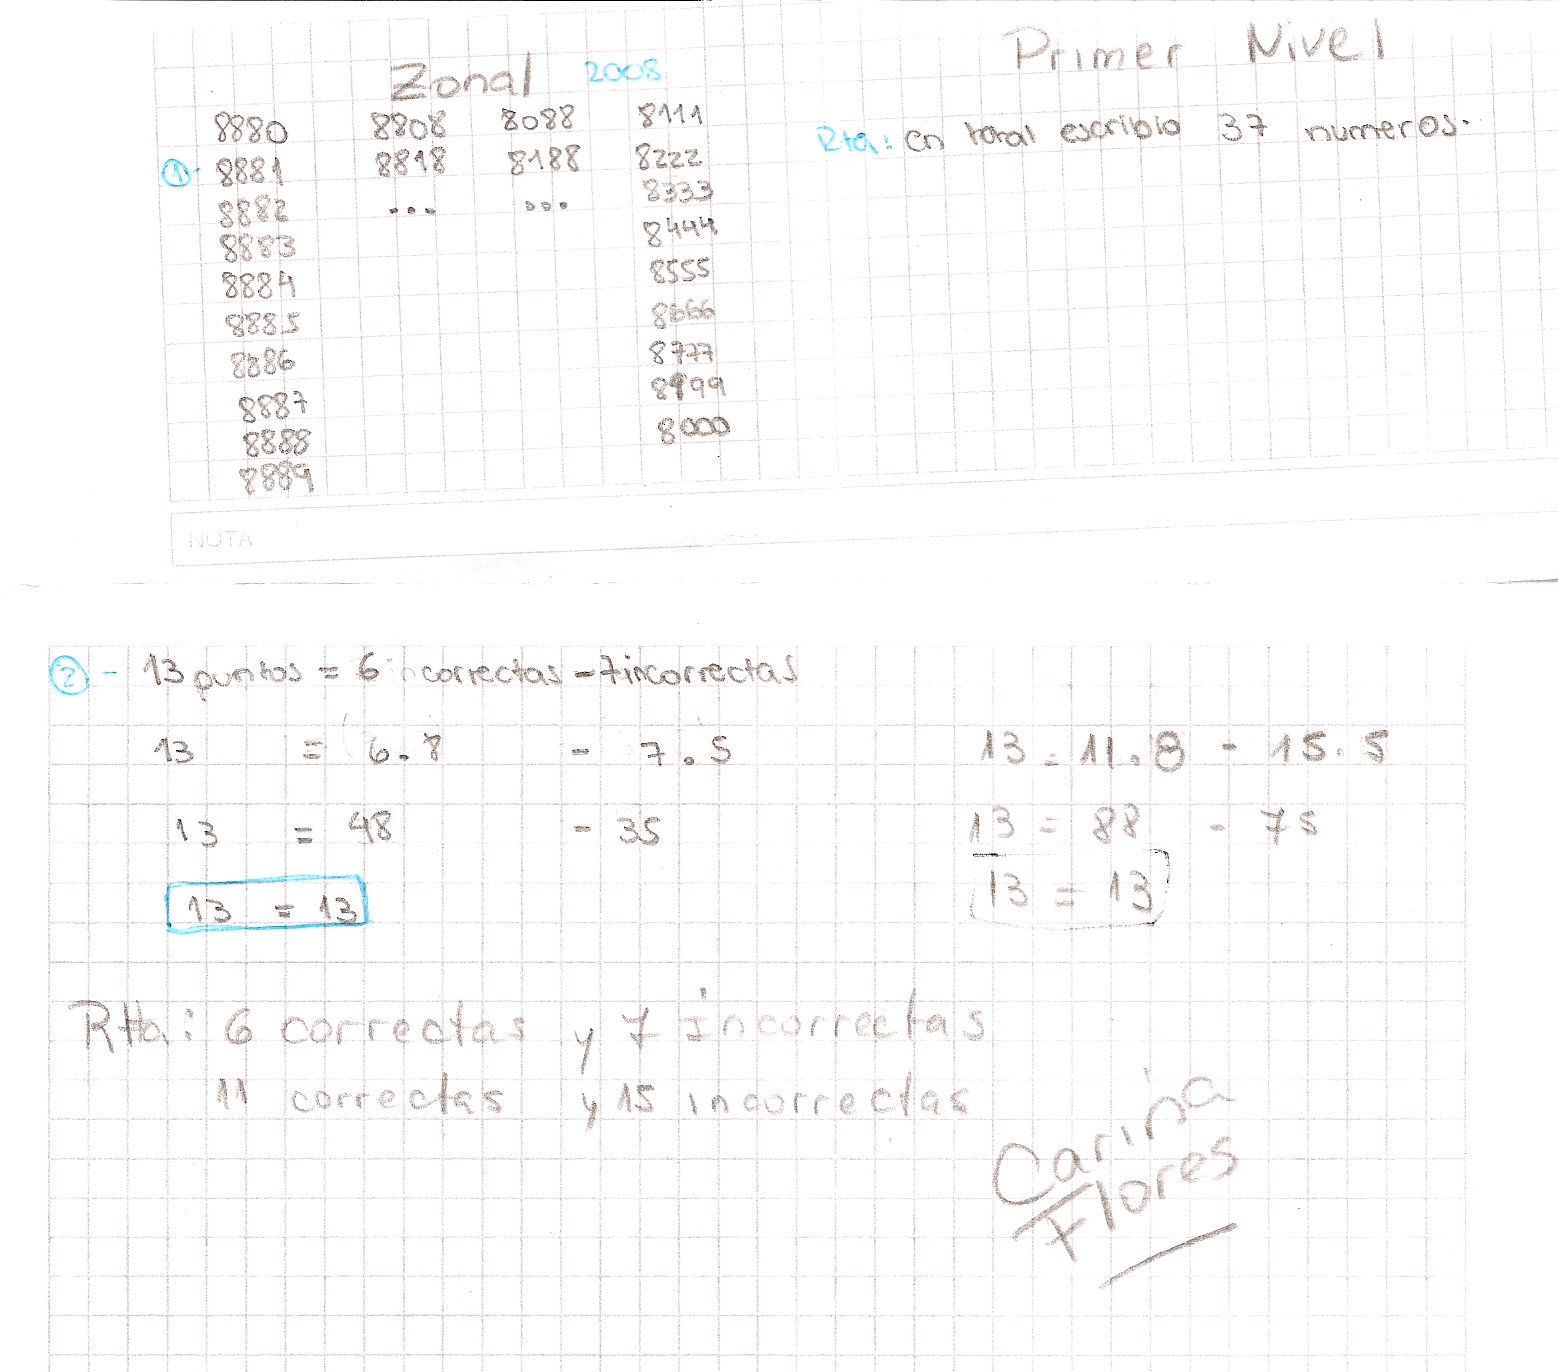 Zonal 2008
Primer Nivel
8880 8808 8088 8111
①- 8881 8818 8188 8222
8882 ... ... 8333
8883 8444
8884 8555
8885 8666
8886 8777
8887 8999
8888 8000
8889
Rta: en total escribio 37 numeros.
NOTA
②- 13 puntos = 6 correctas - 7 incorrectas
13 = 6.8 - 7.5
13 = 48 - 35
13 = 13
13 = 11.8 - 15.5
13 = 88 - 75
13 = 13
Rtta: 6 correctas y 7 incorrectas
11 correctas y 15 incorrectas
Carina
Flores